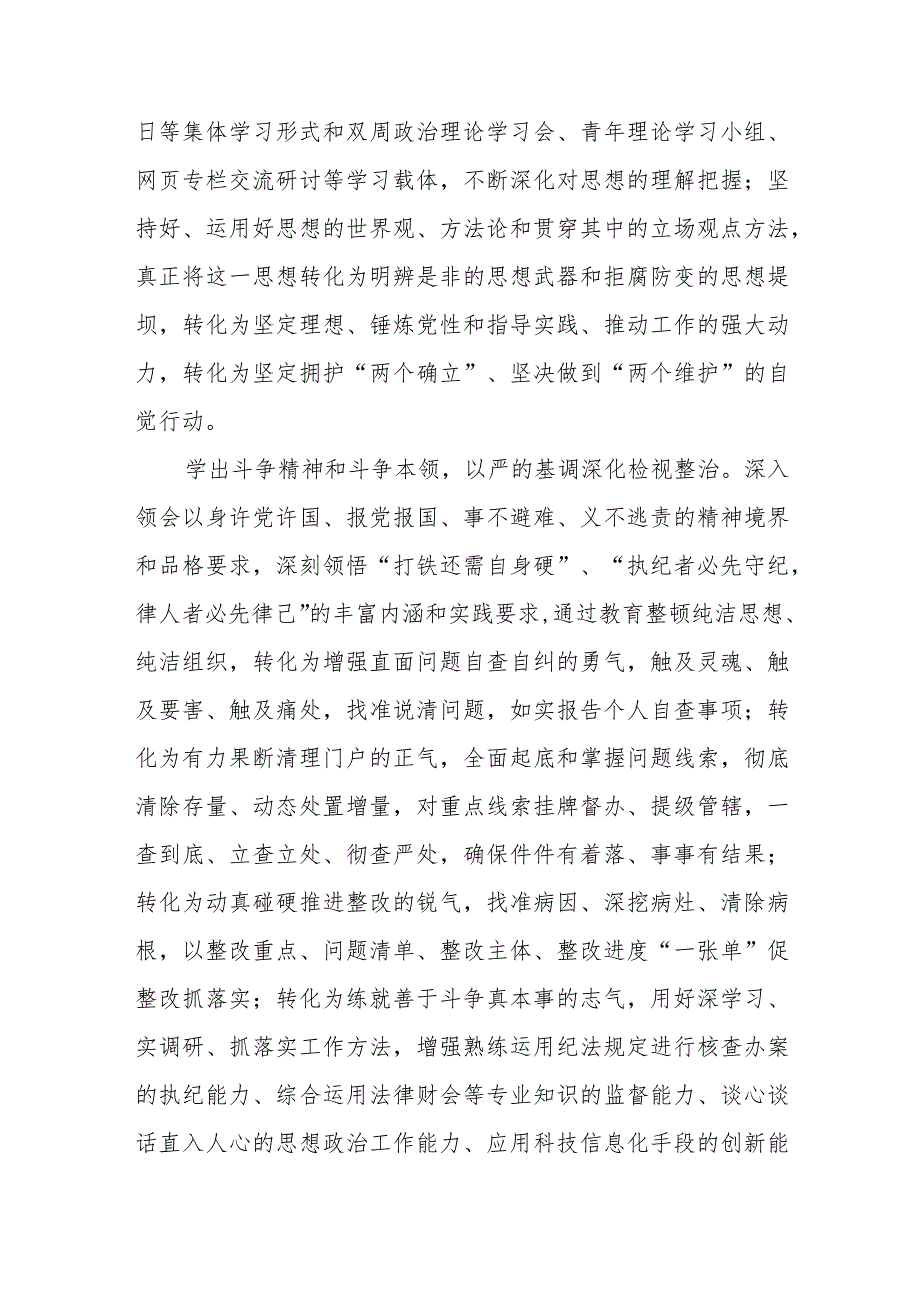 日等集体学习形式和双周政治理论学习会、青年理论学习小组、
网页专栏交流研讨等学习载体，不断深化对思想的理解把握；坚
持好、运用好思想的世界观、方法论和贯穿其中的立场观点方法，
真正将这一思想转化为明辨是非的思想武器和拒腐防变的思想堤
坝，转化为坚定理想、锤炼党性和指导实践、推动工作的强大动
力，转化为坚定拥护“两个确立”、坚决做到“两个维护”的自
觉行动。
学出斗争精神和斗争本领，以严的基调深化检视整治。深入
领会以身许党许国、报党报国、事不避难、义不逃责的精神境界
和品格要求，深刻领悟“打铁还需自身硬”、“执纪者必先守纪，
律人者必先律己”的丰富内涵和实践要求,通过教育整顿纯洁思想、
纯洁组织，转化为增强直面问题自查自纠的勇气，触及灵魂、触
及要害、触及痛处，找准说清问题，如实报告个人自查事项；转
化为有力果断清理门户的正气，全面起底和掌握问题线索，彻底
清除存量、动态处置增量，对重点线索挂牌督办、提级管辖，一
查到底、立查立处、彻查严处，确保件件有着落、事事有结果；
转化为动真碰硬推进整改的锐气，找准病因、深挖病灶、清除病
根，以整改重点、问题清单、整改主体、整改进度“一张单”促
整改抓落实；转化为练就善于斗争真本事的志气，用好深学习、
实调研、抓落实工作方法，增强熟练运用纪法规定进行核查办案
的执纪能力、综合运用法律财会等专业知识的监督能力、谈心谈
话直入人心的思想政治工作能力、应用科技信息化手段的创新能